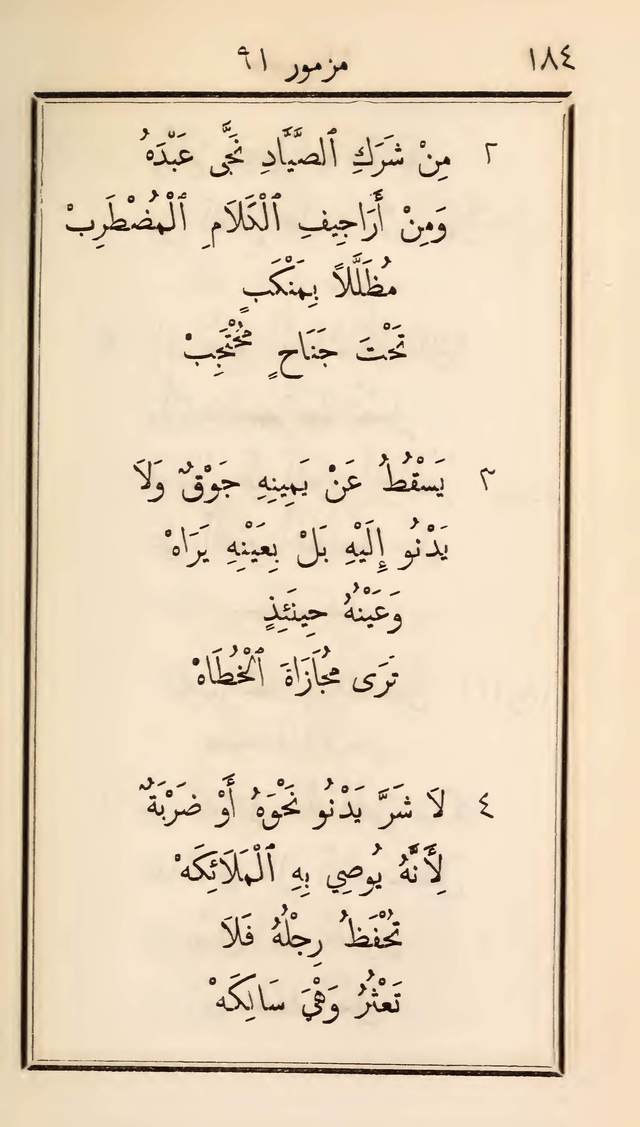 ١٨٤ مزمور ٩١
٢ مِنْ شَرَكِ ٱلصَّيَّادِ نَجَّى عَبْدَهُ
وَمِنْ أَرَاجِيفِ ٱلْكَلَامِ ٱلْمُضْطَرِبْ
مُظَلَّلاً بِمَنْكَبٍ
تَحْتَ جَنَاحٍ مُحْتَجِبْ
٣ يَسْقُطُ عَنْ يَمِينِهِ جَوْقٌ وَلَا
يَدْنُو إِلَيْهِ بَلْ بِعَيْنِهِ يَرَاهْ
وَعَيْنُهُ حِينَئِذٍ
تَرَى مُجَازَاةَ ٱلْخُطَاهْ
٤ لَا شَرَّ يَدْنُو نَحْوَهُ أَوْ ضَرْبَةٌ
لِأَنَّهُ يُوصِي بِهِ ٱلْمَلَائِكَهْ
تُحْفَظُ رِجْلُهُ فَلَا
تَعْثُرُ وَهْيَ سَالِكَهْ